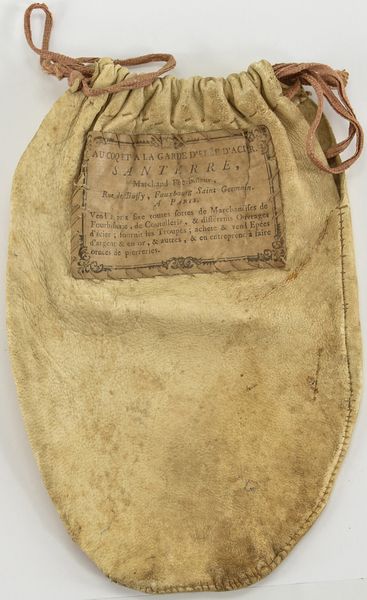 AU COQ ET A LA GARDE D'EPÉE D'ACIER.
SANTERRE,
Marchand Fourbisseur,
Rue de Bussy, Fauxbourg Saint Germain,
A PARIS.
Vend à prix fixe toutes sortes de Marchandises de
Fourbissage, de Coutellerie, & différents Ouvrages
d'acier; fournit les Troupes; achete & vend Epées
d'argent & en or, & autres, & en entreprend à faire
ornées de pierreries.